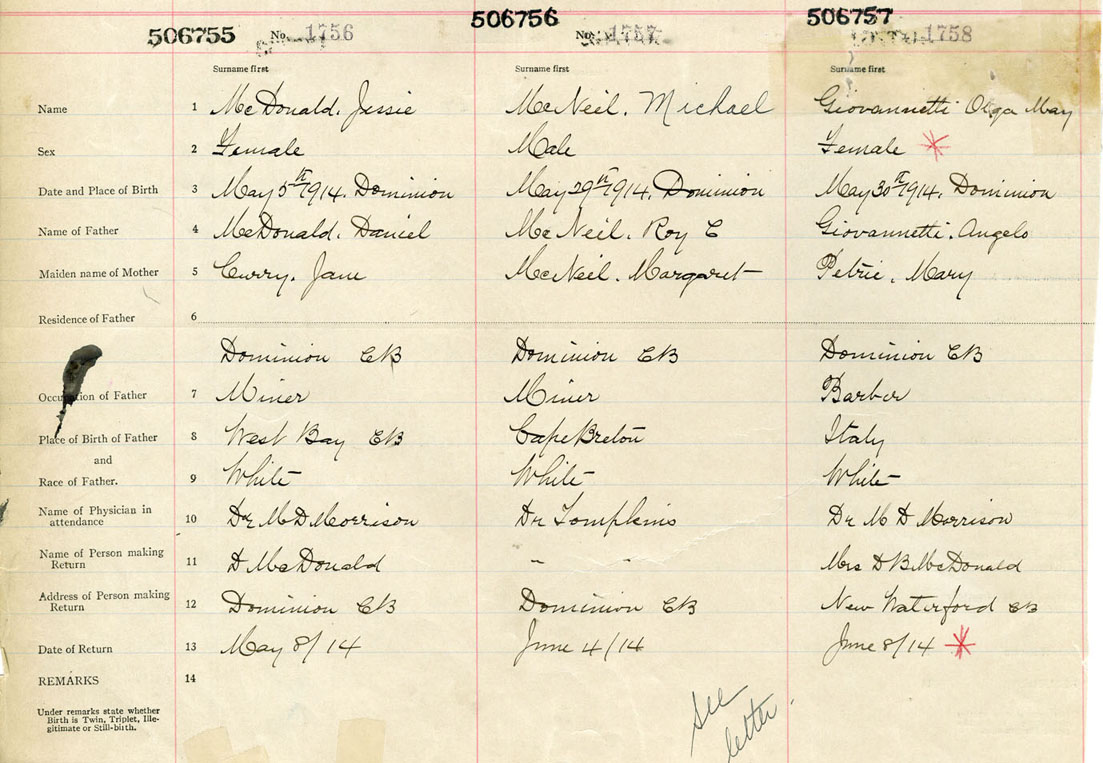 506755 No. 1756 506756 No. 1757 506757 1758
Surname first Surname first Surname first
Name 1 McDonald. Jessie McNeil. Michael Giovannetti Olga May
Sex 2 Female Male Female *
Date and Place of Birth 3 May 5th 1914. Dominion May 29th 1914. Dominion May 30th 1914. Dominion
Name of Father 4 McDonald. Daniel McNeil. Roy C Giovannetti. Angelo
Maiden name of Mother 5 Curry. Jane McNeil. Margaret Petrie. Mary
Residence of Father 6
Dominion CB Dominion CB Dominion CB
Occupation of Father 7 Miner Miner Barber
Place of Birth of Father 8 West Bay CB Cape Breton Italy
and
Race of Father. 9 White White White
Name of Physician in
attendance 10 Dr M D Morrison Dr Tompkins Dr M D Morrison
Name of Person making
Return 11 D McDonald " " Mrs D B McDonald
Address of Person making
Return 12 Dominion CB Dominion CB New Waterford CB
Date of Return 13 May 8/14 June 4/14 June 8/14 *
REMARKS 14
See
letter.
Under remarks state whether
Birth is Twin, Triplet, Ille-
gitimate or Still-birth.